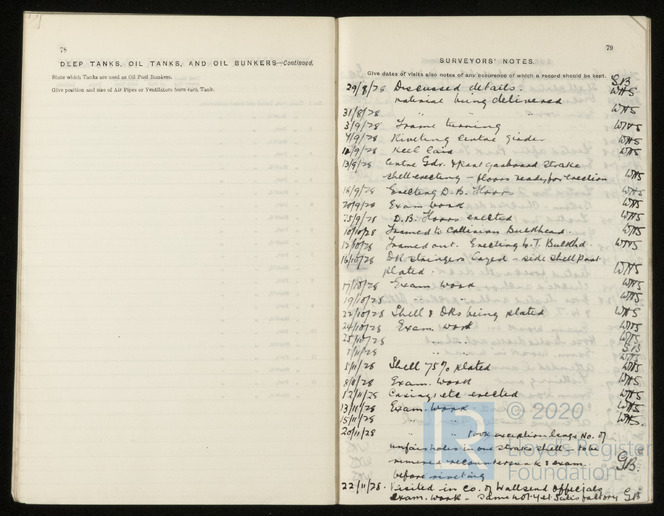 78
DEEP TANKS, OIL TANKS, AND OIL BUNKERS—Continued.
State which Tanks are used as Oil Fuel Bunkers.
Give position and size of Air Pipes or Ventilators from each Tank.
79
SURVEYORS' NOTES.
Give dates of visits also notes of any occurence of which a record should be kept.
SB
29/8/28 Discussed details. WHS
material being delivered
31/8/28 " " " WHS
3/9/28 Frame turning WHS
7/9/28 Riveting Centre girder WHS
12/9/28 Keel laid WHS
13/9/28 Centre Gdr. & Garboard Strake
Shell erecting - floors ready for erection WHS
18/9/28 Erecting D.B. Floors WHS
20/9/28 Exam work WHS
25/9/28 D.B. Floors erected WHS
10/10/28 Framed to Collision Bulkhead. WHS
12/10/28 Framed out. Erecting W.T. Bulkhd. WHS
16/10/28 Dk stringers - side shell part
plated. WHS
17/10/28 Exam work WHS
19/10/28 " " WHS
22/10/28 Shell & Dks being plated WHS
24/10/28 Exam work WHS
25/10/28 " " SB
1/11/28 " " WHS
5/11/28 Shell 75% plated WHS
8/11/28 Exam. work WHS
12/11/28 Casing etc erected WHS
13/11/28 Exam. work WHS
15/11/28 " " WHS.
20/11/28 " " took exception large No. of
unfair holes in one strake shell - to be
removed & exam
before riveting SB.
22/11/28. Visited in Co. of Wallsend Officials
exam. work - same not yet satisfactory SB
© 2020
LR
Lloyd's Register
Foundation